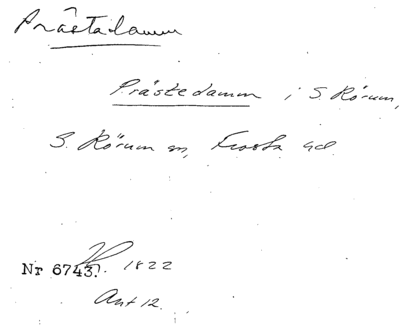 Prästadamm
Prästedamm i S. Rörum,
S. Rörum sn, Frosta hd.
Nr 6743. 1822
Ant 12.